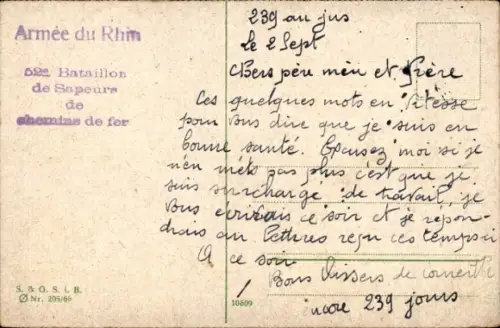 Armée du Rhin
52e Bataillon
de Sapeurs
de
chemins de fer
239 au jus
le 2 Sept
Chers père mère et frère
Ces quelques mots en vitesse
pour vous dire que je suis en
bonne santé. Excusez moi si je
n'en mets pas plus c'est que je
suis surchargé de travail, je
vous écrirais ce soir et je répon-
drais au lettres reçu ces temps ci
A ce soir
Bons baisers de
encore 239 jours
S. & G. S. i. B.
Nr. 205/86
10609